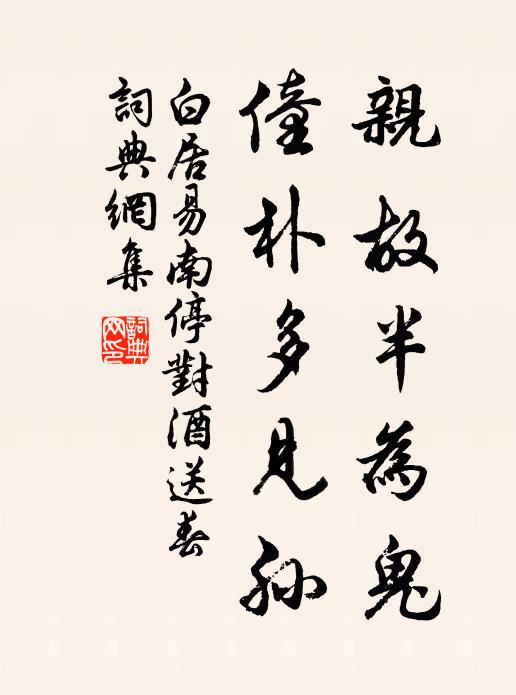 親故半為鬼
僮朴多見孙
白居易南停對酒送春
詞典網集
詞典网印